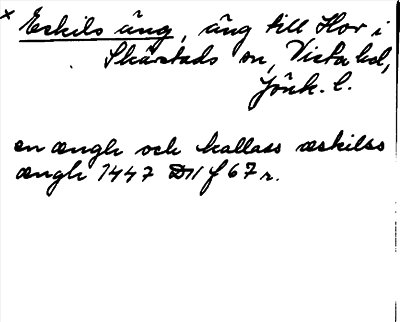 × Eskils äng, äng till Hor i
Skärstads sn, Vista hd,
Jönk. l.
en ængh och kallass æskilss
ængh 1447 D11 f 67 r.